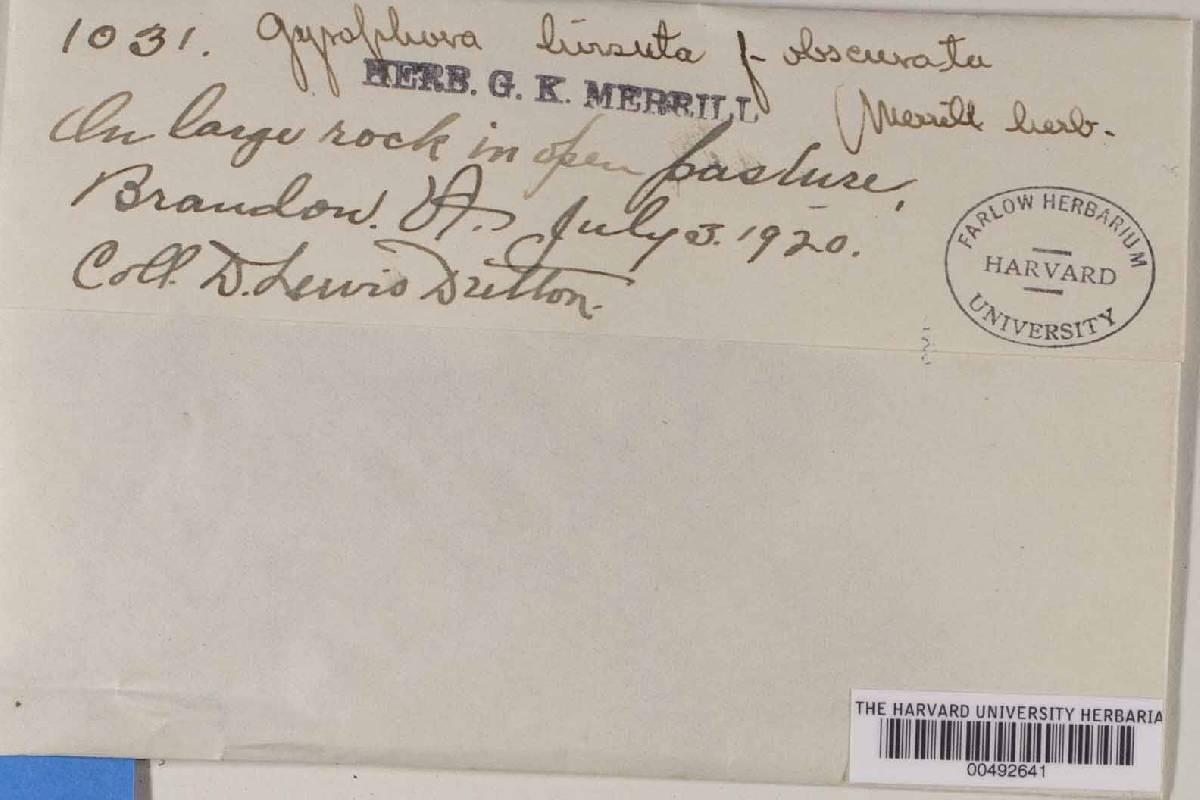 1031. Gyrophora hirsuta f- obscurata
HERB. G. K. MERRILL
Merrill herb.
On large rock in open pasture,
Brandon. Vt. July 3. 1920.
Coll. D. Lewis Dutton.
FARLOW HERBARIUM
HARVARD
UNIVERSITY
THE HARVARD UNIVERSITY HERBARIA
00492641